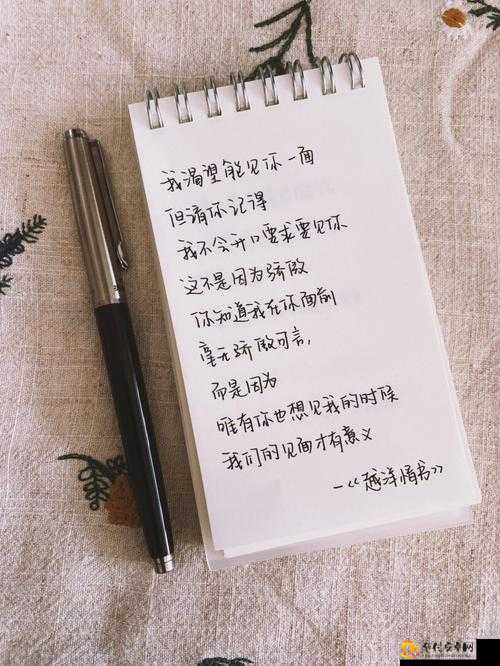 我渴望能见你一面
但请你记得
我不会开口要求要见你
这不是因为骄傲
你知道我在你面前
毫无骄傲可言,
而是因为
唯有你也想见我的时候
我们的见面才有意义
—《越洋情书》